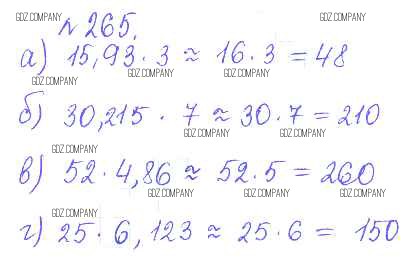 GDZ.COMPANY GDZ.COMPANY
№ 265.
а) 15,93 · 3 ≈ 16 · 3 = 48
GDZ.COMPANY GDZ.COMPANY GDZ.COMPANY
б) 30,215 · 7 ≈ 30 · 7 = 210
GDZ.COMPANY GDZ.COMPANY
GDZ.COMPANY
в) 52 · 4,86 ≈ 52 · 5 = 260
GDZ.COMPANY GDZ.COMPANY GDZ.COMPANY
GDZ.COMPANY
г) 25 · 6,123 ≈ 25 · 6 = 150